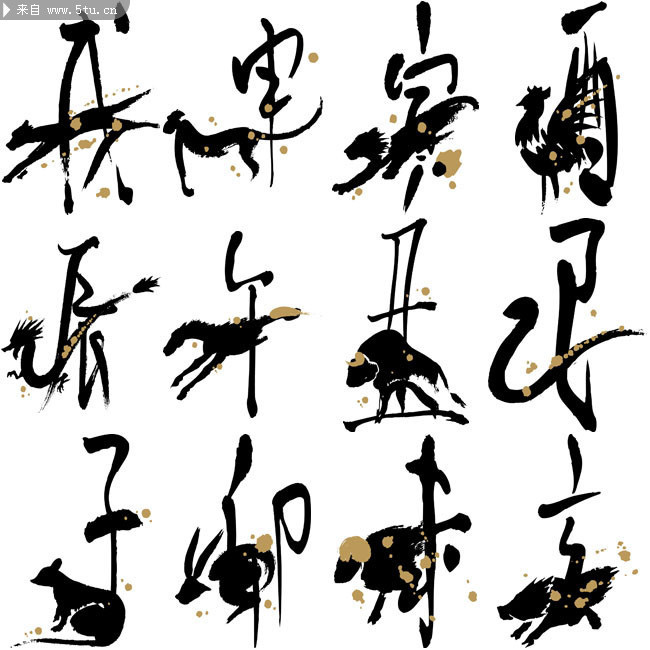 来自 www.5tu.cn
戌 申 寅 酉
辰 午 丑 巳
子 卯 未 亥